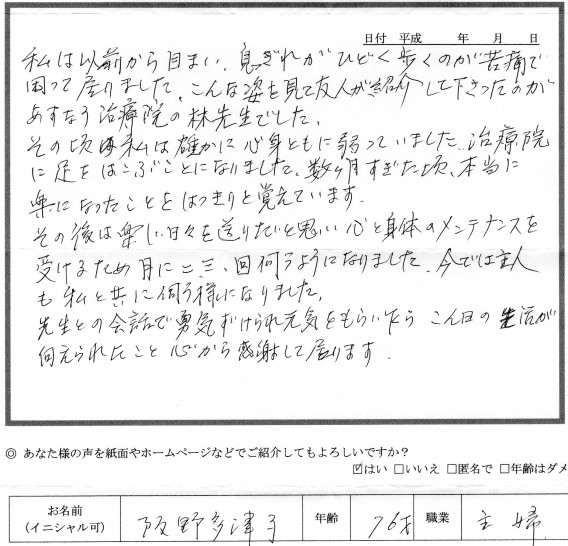 日付 平成 年 月 日
私は以前から目まい、息ぎれがひどく歩くのが苦痛で
困って居りました。こんな姿を見て友人が紹介して下さったのが
あすなろ治療院の林先生でした。
その頃は私は確かに心身ともに弱っていました。治療院
に足をはこぶことになりました。数ヶ月すぎた頃、本当に
楽になったことをはっきりと覚えています。
その後は楽しい日々を送りたいと思い心と身体のメンテナンスを
受けるため月に二、三、回伺うようになりました。今では主人
も私と共に伺う様になりました。
先生との会話で勇気ずけられ元気をもらいながら こん日の生活が
伺えられたこと心から感謝して居ります。
◎ あなた様の声を紙面やホームページなどでご紹介してもよろしいですか?
☑はい □いいえ □匿名で □年齢はダメ
お名前 (イニシャル可) 阪野多津子 年齢 76才 職業 主婦